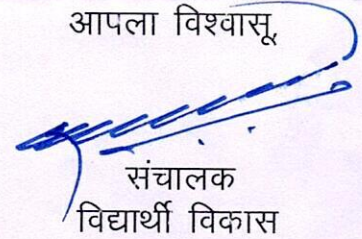 आपला विश्वासू,
संचालक
विद्यार्थी विकास